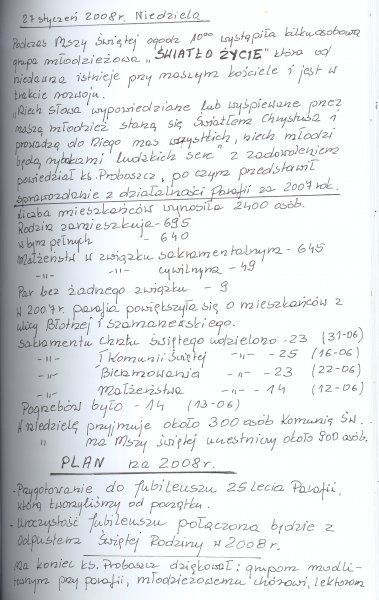 27 styczeń 2008r. Niedziela
Podczas Mszy Świętej o godz 10⁰⁰ wystąpiła kilkuosobowa
grupa młodzieżowa „ŚWIATŁO ŻYCIE" która od
niedawna istnieje przy naszym kościele i jest w
trakcie rozwoju.
„Niech słowa wypowiedziane lub wyśpiewane przez
naszą młodzież staną się Światłem Chrystusa i
prowadzą do Niego nas wszystkich, niech młodzi
będą rybakami ludzkich serc" z zadowoleniem
powiedział ks. Proboszcz, po czym przedstawił
sprawozdanie z działalności Parafii za 2007 rok.
Liczba mieszkańców wynosiła 2400 osób.
Rodzin zamieszkuje - 695
w tym pełnych - 640
Małżeństw w związku sakramentalnym - 645
-"- -"- cywilnym - 49
Par bez żadnego związku - 9
W 2007r. parafia powiększyła się o mieszkańców z
ulicy Błotnej i Szamarzewskiego.
Sakramentu chrztu świętego udzielono - 23 (31-06)
-"- I Komunii Świętej -"- - 25 (16-06)
-"- Bierzmowania -"- - 23 (22-06)
-"- Małżeństwa -"- - 14 (12-06)
Pogrzebów było - 14 (13-06)
W niedzielę przyjmuje około 300 osób Komunię Św.
" na Mszy świętej uczestniczy około 900 osób.
PLAN na 2008r.
- Przygotowanie do Jubileuszu 25 lecia Parafii,
którą tworzyliśmy od początku.
- Uroczystość Jubileuszu połączona będzie z
Odpustem Świętej Rodziny w 2008r.
Na koniec ks. Proboszcz dziękował: grupom modli-
tewnym przy parafii, młodzieżowemu chórowi, lektorom